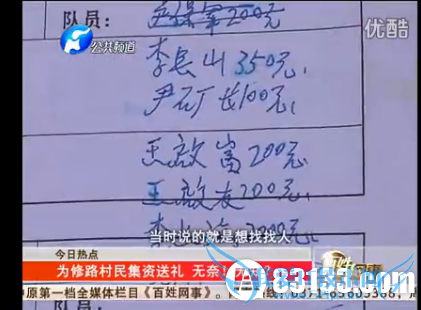 队员:
200元
优酷
公共频道
李长山350元,
尹石厂长100元,
王啟富200元,
王啟友200元,
当时说的就是想找找人
今日热点
为修路村民集资送礼 无奈!
83133.com
中原第一档全媒体栏目《百姓网事》。
队员: